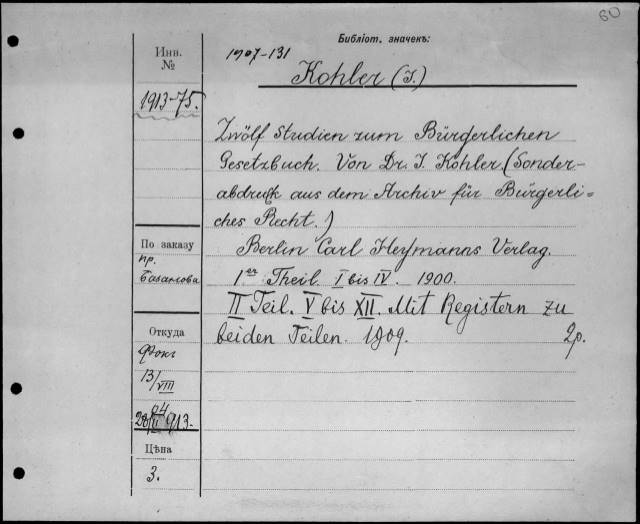 60
Библіот. значекъ:
Инв.
№
1907-131
Kohler (J.)
1913-75.
Zwölf Studien zum Bürgerlichen
Gesetzbuch. Von Dr. J. Kohler. (Sonder-
abdruck aus dem Archiv für Bürgerli-
ches Recht.)
По заказу
пр.
Базанова
Berlin Carl Heymanns Verlag.
1er Theil. I bis IV. 1900.
II Teil. V bis XII. Mit Registern zu
beiden Teilen. 1909. 2p.
Откуда
Фокъ
13/VIII
04
28/II 913.
Цѣна
3.